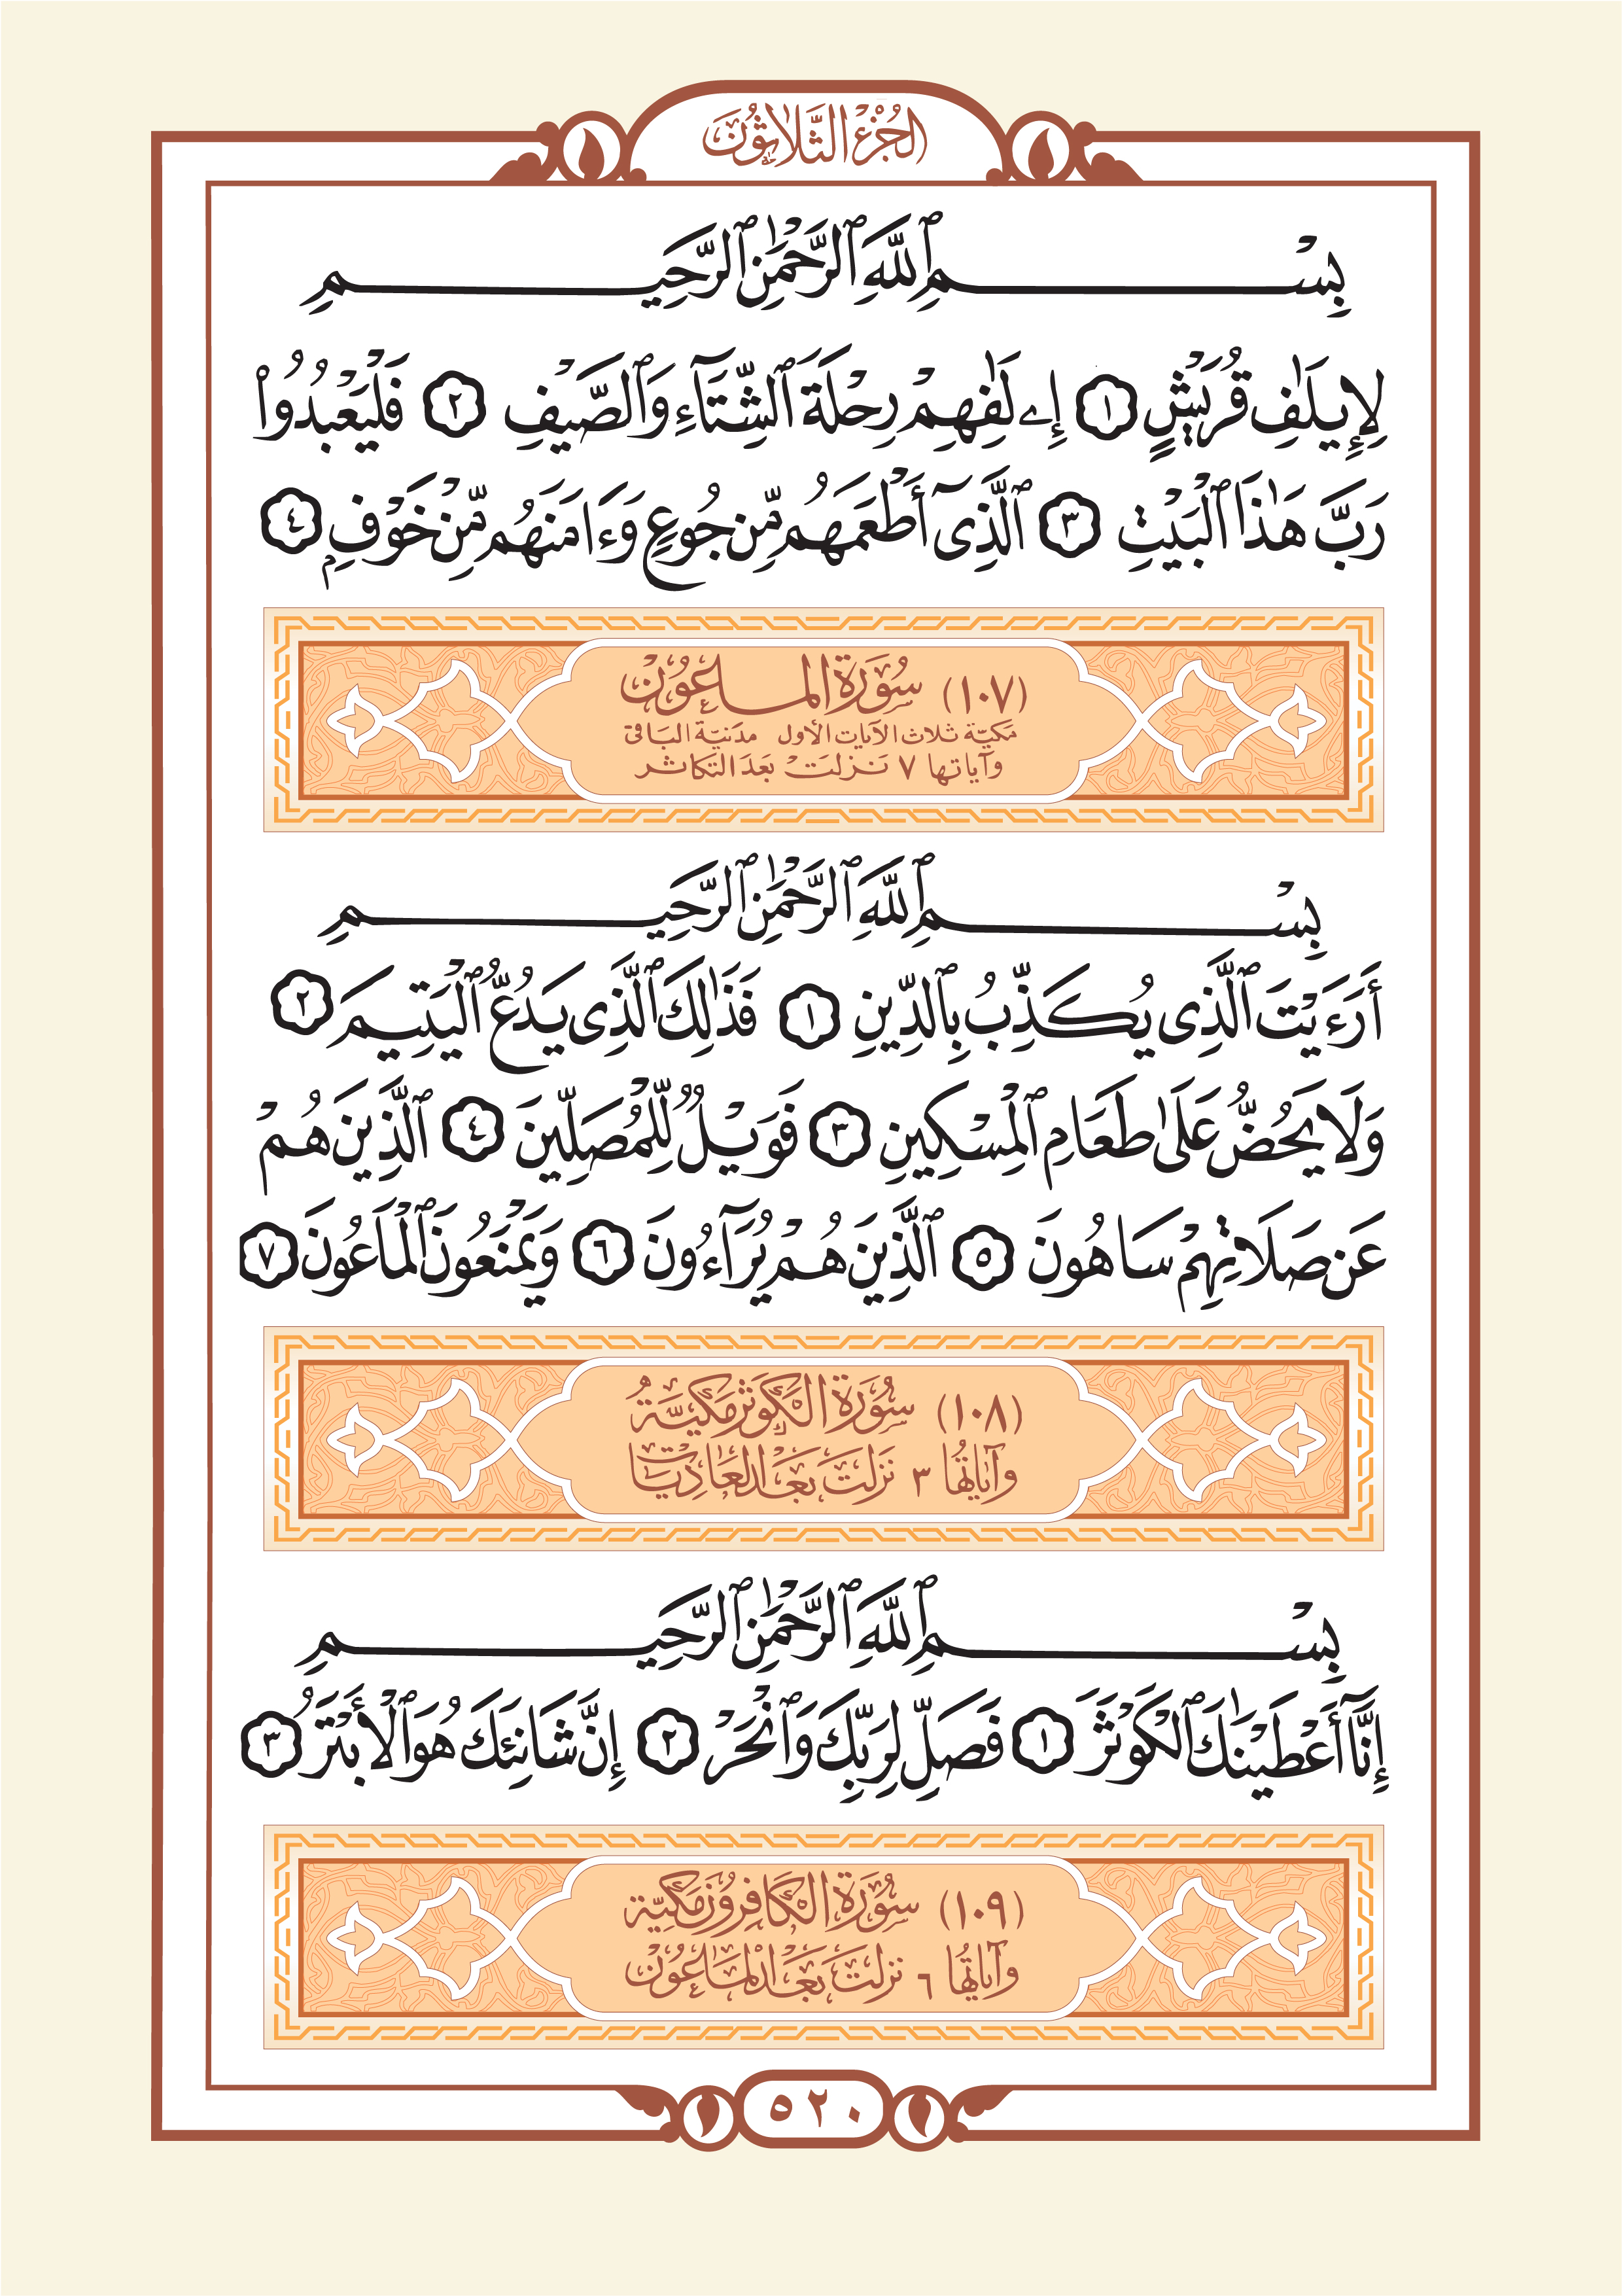 الجُزْءُ الثَّلَاثُونَ
بِسْمِ ٱللَّهِ ٱلرَّحْمَٰنِ ٱلرَّحِيمِ
لِإِيلَٰفِ قُرَيْشٍ ١ إِۦلَٰفِهِمْ رِحْلَةَ ٱلشِّتَآءِ وَٱلصَّيْفِ ٢ فَلْيَعْبُدُوا۟
رَبَّ هَٰذَا ٱلْبَيْتِ ٣ ٱلَّذِىٓ أَطْعَمَهُم مِّن جُوعٍ وَءَامَنَهُم مِّنْ خَوْفٍۭ ٤
(١٠٧) سُورَةُ المَاعُونْ
مكيّة ثلاث الآيات الأول مدنيّة الباقى
وآياتها ٧ نزلت بعد التكاثر
بِسْمِ ٱللَّهِ ٱلرَّحْمَٰنِ ٱلرَّحِيمِ
أَرَءَيْتَ ٱلَّذِى يُكَذِّبُ بِٱلدِّينِ ١ فَذَٰلِكَ ٱلَّذِى يَدُعُّ ٱلْيَتِيمَ ٢
وَلَا يَحُضُّ عَلَىٰ طَعَامِ ٱلْمِسْكِينِ ٣ فَوَيْلٌ لِّلْمُصَلِّينَ ٤ ٱلَّذِينَ هُمْ
عَن صَلَاتِهِمْ سَاهُونَ ٥ ٱلَّذِينَ هُمْ يُرَآءُونَ ٦ وَيَمْنَعُونَ ٱلْمَاعُونَ ٧
(١٠٨) سُورَةُ الكَوثَر مَكيَّةُ
وآيَاتُهَا ٣ نَزَلَتْ بَعْدَ العَادِيَات
بِسْمِ ٱللَّهِ ٱلرَّحْمَٰنِ ٱلرَّحِيمِ
إِنَّآ أَعْطَيْنَٰكَ ٱلْكَوْثَرَ ١ فَصَلِّ لِرَبِّكَ وَٱنْحَرْ ٢ إِنَّ شَانِئَكَ هُوَ ٱلْأَبْتَرُ ٣
(١٠٩) سُورَةُ الكَافِرُون مَكِيّة
وآيَاتُهَا ٦ نزلت بَعْدَ المَاعُونْ
٥٢٠